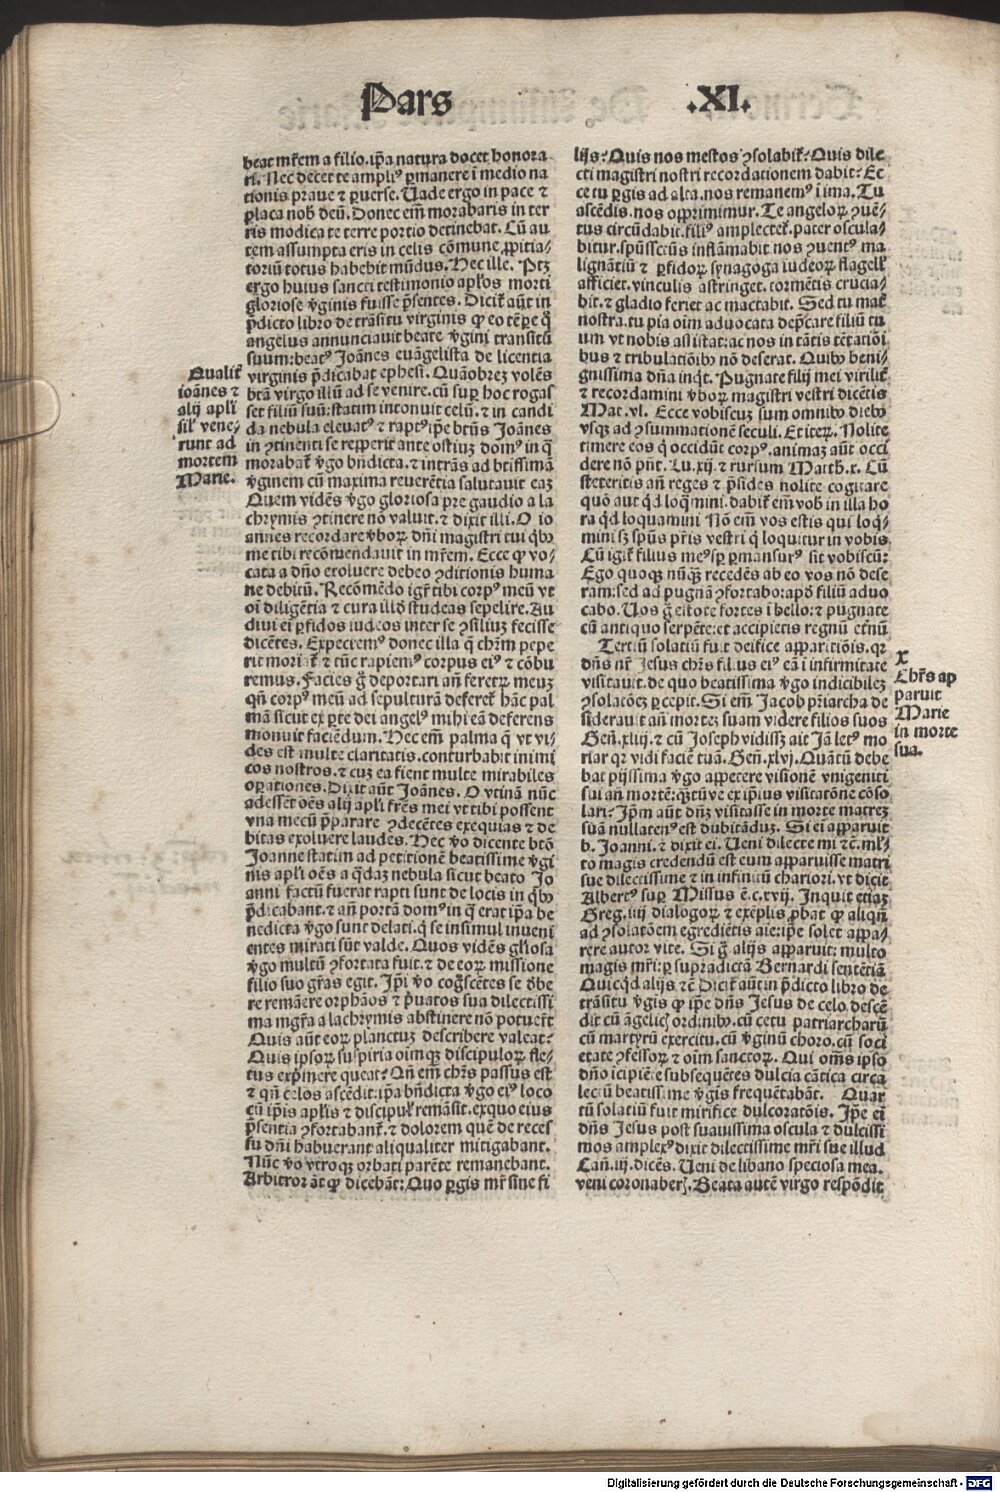 Pars .XI.
beat mr̄em a filio.ip̄a natura docet honora
ri. Nec decet te ampliꝰ ꝑmanere ī medio na
tionis praue ⁊ ꝑuerse. Uade ergo in pace ⁊
ꝑlaca nob̄ deū. Donec em̄ morabaris in ter
ris modica te terre portio detinebat. Cū au
tem assumpta eris in celis cōmune ꝓpitia⸗
toriū totus habebit mūdus. Hec ille. Ptꝫ
ergo huius sancti testimonio apl̄os morti
gloriose v̄ginis fuisse p̄sentes. Dicit̄ aūt in
p̄dicto libro de trāsitu virginis ꝙ eo tēꝑe q̄
angelus annunciauit beate v̄gini transitū
suum:beatꝰ Joānes euāgelista de licentia
virginis p̄dicabat ephesi. Quāobrez volēs
btā virgo illiū ad se venire.cū suꝑ hoc rogas
set filiū suū:statim intonuit celū.⁊ in candi
da nebula eleuatꝰ ⁊ raptꝰ ip̄e btūs Joānes
in ꝯtinenti se reꝑperit ante ostiuꝫ domꝰ in q̄
morabat̄ v̄go bn̄dicta.⁊ intrās ad btissimā
v̄ginem cū maxima reuerētia salutauit eaꝫ
Quem vidēs v̄go gloriosa pre gaudio a la
chrymis ꝯtinere nō valuit.⁊ dixit illi. O io
annes recordare v̄boꝝ dn̄i magistri tui q̄bꝰ
me tibi recōmendauit in mr̄em. Ecce ꝙ vo⸗
cata a dn̄o exoluere debeo ꝯditionis huma
ne debitū. Recōmēdo igr̄ tibi corpꝰ meū vt
oī diligētia ⁊ cura illd̄ studeas sepelire. Au
diui eī ꝑfidos iudeos inter se ꝯsiliuꝫ fecisse
dicētes. Expectemꝰ donec illa q̄ chr̄m pepe
rit moriat̄ ⁊ tūc rapiemꝰ corpus eiꝰ ⁊ cōbu
remus. Facies g̈ deportari añ feretꝝ meuꝫ
qn̄ corpꝰ meū ad sepulturā deferet̄ hāc pal
mā sicut ex ꝑte dei angelꝰ mihi eā deferens
monuit faciēdum. Hec em̄ palma q̄ vt vi⸗
des est multe claritatis.conturbabit inimi
cos nostros.⁊ cuꝫ ea fient multe mirabiles
oꝑationes. Dixit aūt Joānes. O vtinā nūc
adessēt oēs alij apl̄i fr̄es mei vt tibi possent
vna mecū p̄parare ꝯdecētes exequias ⁊ de
bitas exoluere laudes. Hec v̄o dicente btō
Joanne statim ad petitionē beatissime v̄gi
nis apl̄i oēs a q̄daꝫ nebula sicut beato Jo
anni factū fuerat rapti sunt de locis in q̄bꝰ
p̄dicabant.⁊ añ portā domꝰ in q̄ erat ip̄a be
nedicta v̄go sunt delati.q̄ se insimul inueni
entes mirati sūt valde. Quos vidēs gl̄iosa
v̄go multū ꝯfortata fuit.⁊ de eoꝝ missione
filio suo gr̄as egit. Ip̄i v̄o cog̈scētes se d̄be
re remāere orphāos ⁊ p̄uatos sua dilectissi
ma mgr̄a a lachrymis abstinere nō potuer̄t
Quis aūt eoꝝ planctuꝫ describere valeat?
Quis ipsoꝝ suspiria oimqꝫ discipuloꝝ fle⸗
tus exp̄mere queat? Qn̄ em̄ chr̄s passus est
⁊ qn̄ celos ascēdit:ip̄a bn̄dicta v̄go eiꝰ loco
cū ip̄is apl̄is ⁊ discipul̄ remāsit.ex quo eius
p̄sentia ꝯfortabant̄.⁊ dolorem quē de reces
su dn̄i habuerant aliqualiter mitigabant.
Nūc v̄o vtroqꝫ orbati parēte remanebant.
Arbitror āt ꝙ dicebāt: Quo ꝑgis mr̄ sine fi
Qualit̄
ioānes ⁊
alij apl̄i
sil̄ vene⸗
runt ad
mortem
Marie.
lijs? Quis nos mestos ꝯsolabit̄? Quis dile
cti magistri nostri recordationem dabit? Ec
ce tu ꝑgis ad alta.nos remanemꝰ ī ima. Tu
ascēdis.nos oꝑprimimur. Te angeloꝝ ꝯuē⸗
tus circūdabit.filiꝰ amplectet̄.pater oscula⸗
bitur.spūssctūs inflāmabit nos ꝯuentꝰ ma
lignātiū ⁊ ꝑfidoꝝ synagoga iudeoꝝ flagell̄
afficiet.vinculis astringet.tormētis crucia⸗
bit.⁊ gladio feriet ac mactabit. Sed tu mat̄
nostra.tu pia oīm aduocata dep̄care filiū tu
um vt nobis assistat:ac nos in tātis tētatiōi
bus ⁊ tribulatiōibꝰ nō deserat. Quibꝰ beni⸗
gnissima dn̄a inq̄t. Pugnate filij mei virilit̄
⁊ recordamini v̄boꝝ magistri vestri dicētis
Mat.vl. Ecce vobiscuꝫ sum omnibꝰ diebꝰ
vsqꝫ ad ꝯsummationē seculi. Et iteꝝ. Nolite
timere eos q̄ occidūt corpꝰ.animaꝫ aūt occi
dere nō pn̄t. Lu.xij.⁊ rursum Matth.x. Cū
steteritis añ reges ⁊ p̄sides nolite cogitare
quō aut qd̄ loq̄mini.dabit̄ em̄ vob̄ in illa ho
ra qd̄ loquamini Nō em̄ vos estis qui loq̄⸗
mini sꝫ spūs pr̄is vestri q̄ loquitur in vobis
Cū igit̄ filius meꝰ sꝑ ꝑmansurꝰ sit vobiscū:
Ego quoqꝫ nūqꝫ̄ recedēs ab eo vos nō dese
ram:sed ad pugnā ꝯfortabo:apd̄ filiū aduo
cabo. Uos g̈ estote fortes ī bello:⁊ pugnate
cū antiquo serpēte:et accipietis regnū etn̄ū
Tertiū solatiū fuit deifice apparitiōis.qꝛ
dn̄s nr̄ Jesus chr̄s filius eiꝰ eā ī infirmitate
visitauit.de quo beatissima v̄go indicibileꝫ
ꝯsolatōeꝫ ꝑcepit. Si em̄ Jacob pr̄iarcha de
siderauit añ morteꝫ suam videre filios suos
Gen̄.xliij.⁊ cū Joseph vidissꝫ ait Jā letꝰ mo
riar qꝛ vidi faciē tuā. Gen̄.xlvj. Quātū debe
bat pijssima v̄go aꝑpetere visionē vnigeniti
sui añ mortē:qꝫ̄tū ve ex ipiꝰ visitatōne cōso
lari? Ip̄m aūt dn̄ꝫ visitasse in morte matreꝫ
suā nullatenꝰ est dubitāduꝫ. Si eī aꝑparuit
b. Joanni.⁊ dixit ei. Ueni dilecte mi ⁊c̄.ml̄⸗
to magis credendū est eum aꝑparuisse matri
sue dilectissime ⁊ in infinitū chariori.vt dicit
Albertꝰ suꝑ Missus ē.c.xvij. Inquit etiaꝫ
Greg.iiij dialogoꝝ ⁊ exēplis ꝓbat ꝙ aliqn̄
ad ꝯsolatōem egrediētis aīe:ip̄e solet aꝑpa⸗
rere autor vite. Si g̈ alijs aꝑparuit: multo
magis mr̄i:ꝑ supradictā Bernardi sentētiā
Quicqd̄ alijs ⁊c̄ Dicit̄ aūt in p̄dicto libro de
trāsitu v̄gis ꝙ ip̄e dn̄s Jesus de celo descē
dit cū āgelicꝭ ordinibꝰ.cū cetu patriarcharū
cū martyrū exercitu.cū v̄ginū choro.cū soci
etate ꝯfessoꝝ ⁊ oīm sanctoꝝ. Qui om̄s ipso
dn̄o īcipiēte subsequētes dulcia cātica circa
lectū beatissime v̄gis frequētabāt. Quar
tū solatiū fuit mirifice dulcoratōis. Ip̄e eī
dn̄s Jesus post suauissima oscula ⁊ dulcissi
mos amplexꝰ dixit dilectissime mr̄i sue illud
Can̄.iiij.dicēs. Ueni de libano speciosa mea.
veni coronaberꝭ. Beata autē virgo respōdit
X
Chr̄s ap
paruit
Marie
in morte
sua.
Digitalisierung gefördert durch die Deutsche Forschungsgemeinschaft - DFG